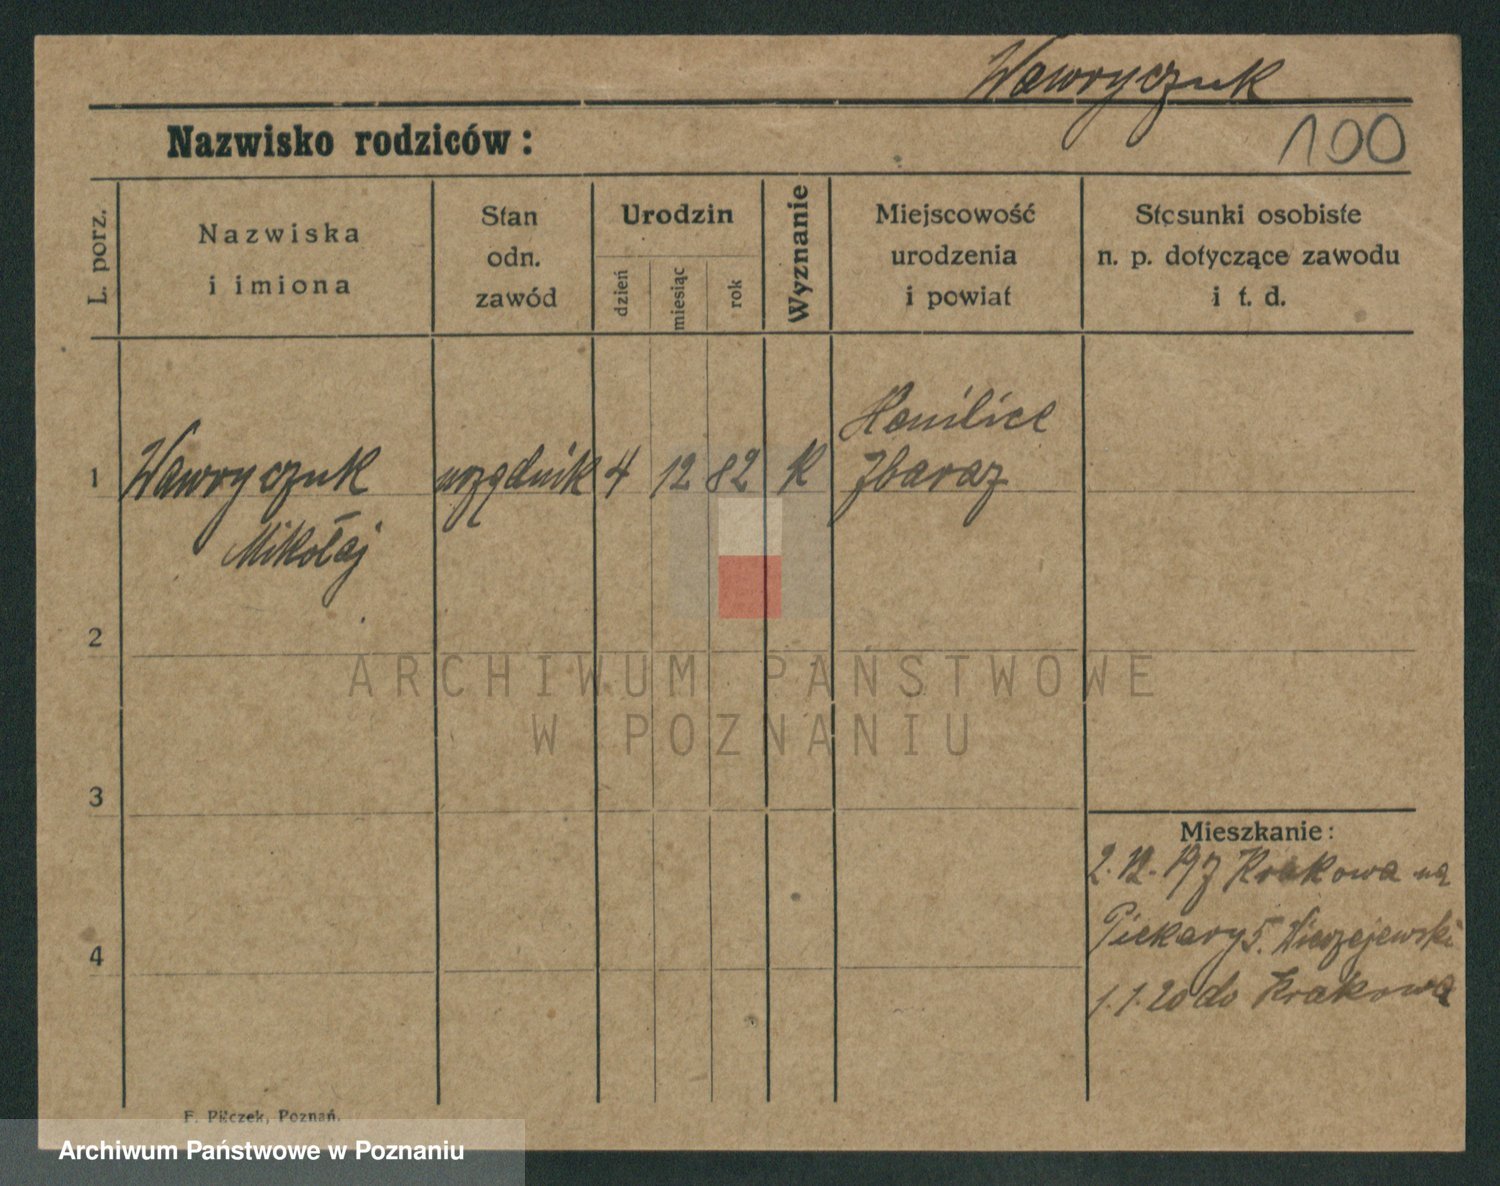 Wawryczuk
Nazwisko rodziców:
100
L. porz.
Nazwiska
i imiona
Stan
odn.
zawód
Urodzin
dzień
miesiąc
rok
Wyznanie
Miejscowość
urodzenia
i powiat
Stosunki osobiste
n. p. dotyczące zawodu
i t. d.
1
Wawryczuk
Mikołaj
urzędnik
4
12
82
K
Zbaraz
2
3
4
Mieszkanie:
2.12.19 z Krakowa na
Piekary 5.
1.1.20 do Krakowa
F. Pilczek, Poznań.
ARCHIWUM PAŃSTWOWE
W POZNANIU
Archiwum Państwowe w Poznaniu